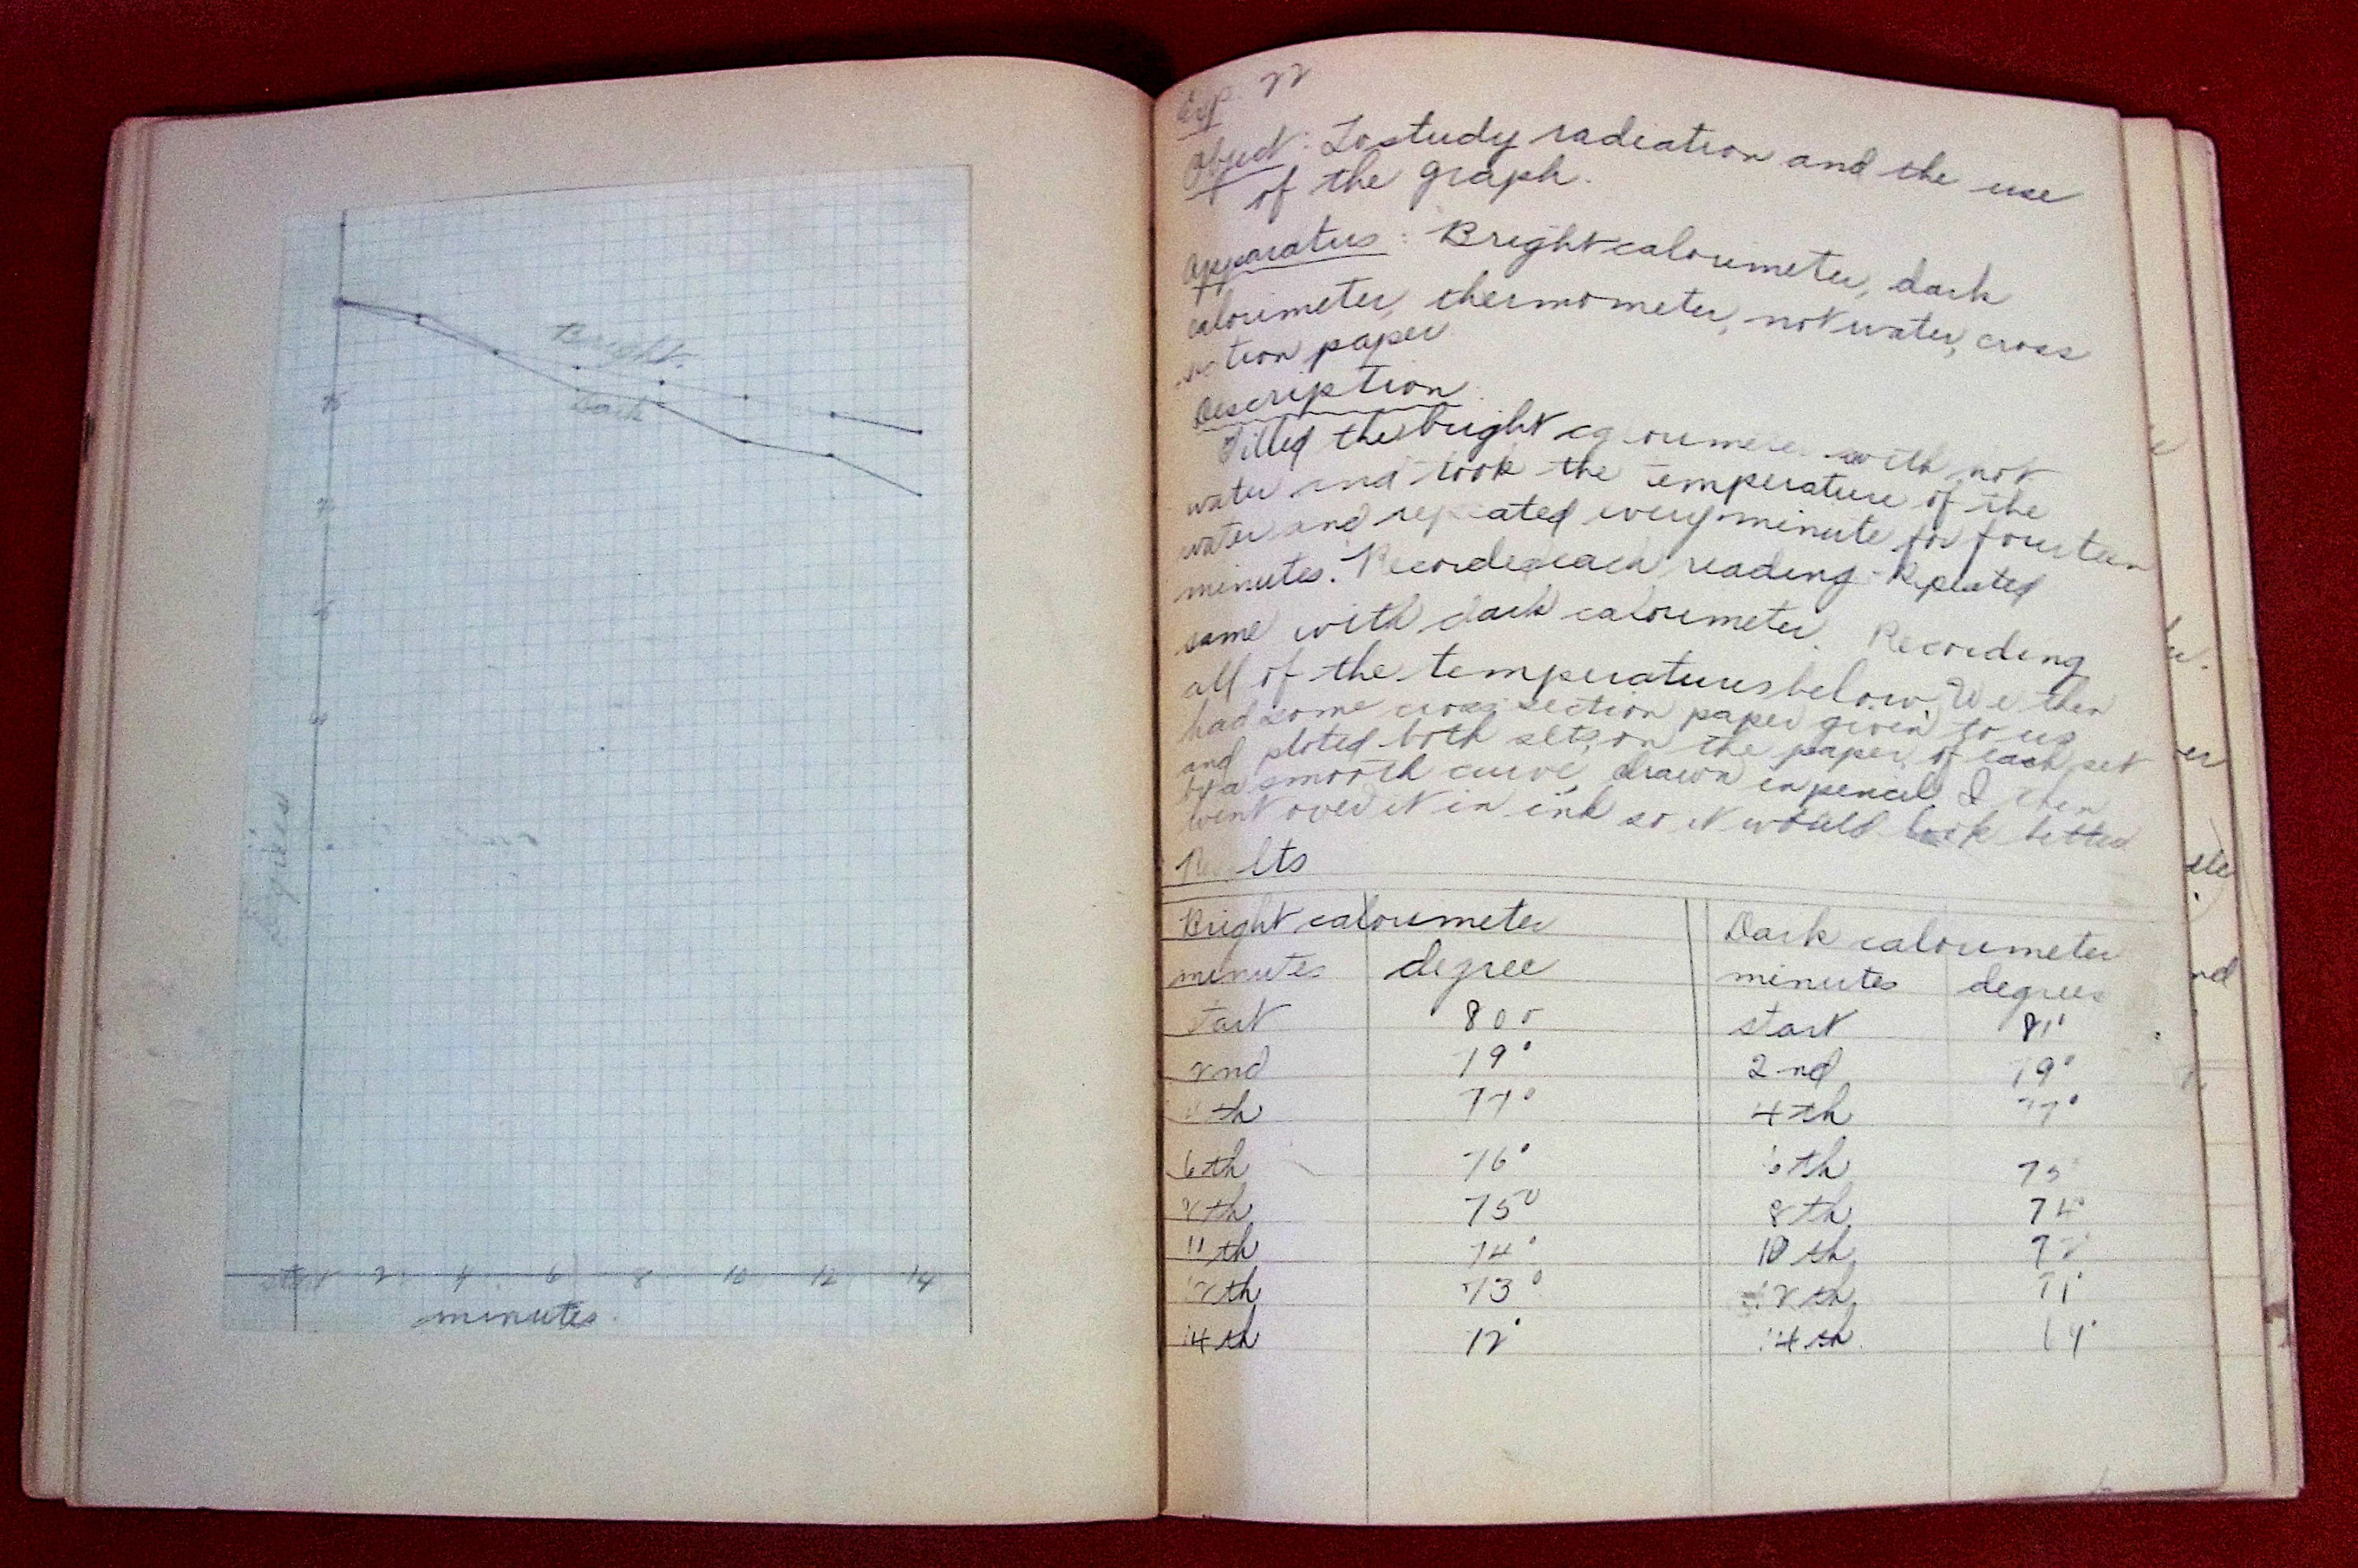 Bright
Dark
75
70
minutes
start 2 4 6 8 10 12 14
Degrees
Exp. 22
Object: To study radiation and the use
of the graph.
Apparatus: Bright calorimeter, dark
calorimeter, thermometer, hot water, cross
section paper
Description
Filled the bright calorimeter with hot
water and took the temperature of the
water and repeated every minute for fourteen
minutes. Recorded each reading. Repeated
same with dark calorimeter. Recording
all of the temperatures below. We then
had some cross section paper given to us
and ploted both sets on the paper of each set
by a smooth curve, drawn in pencil I then
went over it in ink so it would look better
Results
Bright calorimeter Dark calorimeter
minutes degree minutes degrees
start 80° start 81°
2nd 79° 2nd 79°
4th 77° 4th 77°
6th 76° 6th 75
8th 75° 8th 74°
11th 74° 10th 72
12th 73° 12th 71°
14th 72° 14th